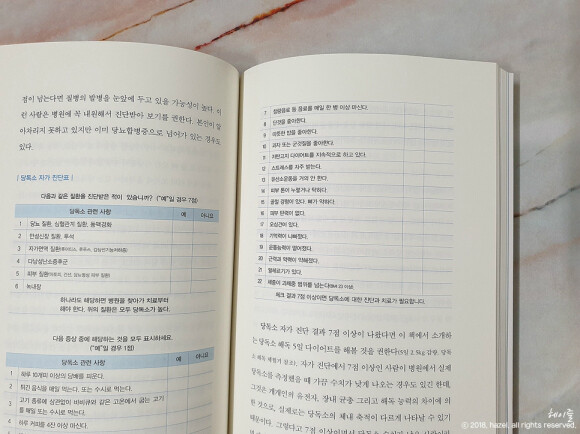 점이 넘는다면 질병의 발병을 눈앞에 두고 있을 가능성이 높다. 이
런 사람은 병원에 꼭 내원해서 진단받아 보기를 권한다. 본인이 알
아차리지 못하고 있지만 이미 당뇨합병증으로 넘어가 있는 경우도
있다.
| 당독소 자가 진단표 |
다음과 같은 질환을 진단받은 적이 있습니까? ("예"일 경우 7점)
당독소 관련 사항 예 아니요
1 당뇨 질환, 심혈관계 질환, 동맥경화
2 만성신장 질환, 투석
3 자가면역 질환
4 다낭성난소증후군
5 피부 질환
6 녹내장
하나라도 해당하면 병원을 찾아가 치료부터
해야 한다. 위의 질환은 모두 당독소가 높다.
다음 증상 중에 해당하는 것을 모두 표시하세요.
("예"일 경우 1점)
당독소 관련 사항 예 아니요
1 하루 10개피 이상의 담배를 피운다.
2 튀긴 음식을 매일 먹는다. 또는 수시로 먹는다.
3 고기 종류에 상관없이 바비큐와 같은 고온에서 굽는 고기
를 매일 먹는다. 또는 수시로 먹는다.
4 하루 커피를 4잔 이상 마신다.
7 청량음료 등 음료를 매일 한 병 이상 마신다.
8 단것을 좋아한다.
9 따뜻한 밥을 좋아한다.
10 과자 또는 군것질을 좋아한다.
11 저탄고지 다이어트를 지속적으로 하고 있다.
12 스트레스를 자주 받는다.
13 유산소운동을 거의 안 한다.
14 피부 톤이 누렇거나 탁하다.
15 골절 경험이 있다. 뼈가 약하다.
16 피부 탄력이 없다.
17 오십견이 있다.
18 기억력이 나빠졌다.
19 운동능력이 떨어졌다.
20 근력과 악력이 약해졌다.
21 혈뇨기가 있다.
22 체중이 과체중 범위를 넘는다(BMI 23 이상)
체크 결과 7점 이상이면 당독소에 대한 진단과 치료가 필요합니다.
당독소 자가 진단 결과 7점 이상이 나왔다면 이 책에서 소개하
는 당독소 해독 5일 다이어트를 해볼 것을 권한다
자가 진단에서 7점 이상인 사람이 병원에서 실제
당독소를 측정했을 때 가끔 수치가 낮게 나오는 경우도 있긴 한데,
그것은 개개인의 유전자, 장내 균형 그리고 해독 능력의 차이에 의
한 것으로, 실제로는 당독소의 체내 축적이 다르게 나타날 수 있기
때문이다. 그렇다고 7점 이상이면서
헤이즐
© 2018. hazel. all rights reserved.